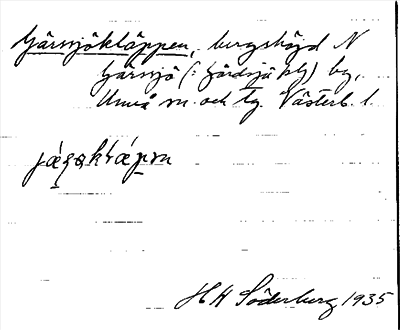 Gärssjökläppen, bergshöjd N
Gärssjö (: Gärdsjö ktg) by,
Umeå sn. och tg. Västerb. l.
H H Söderberg 1935